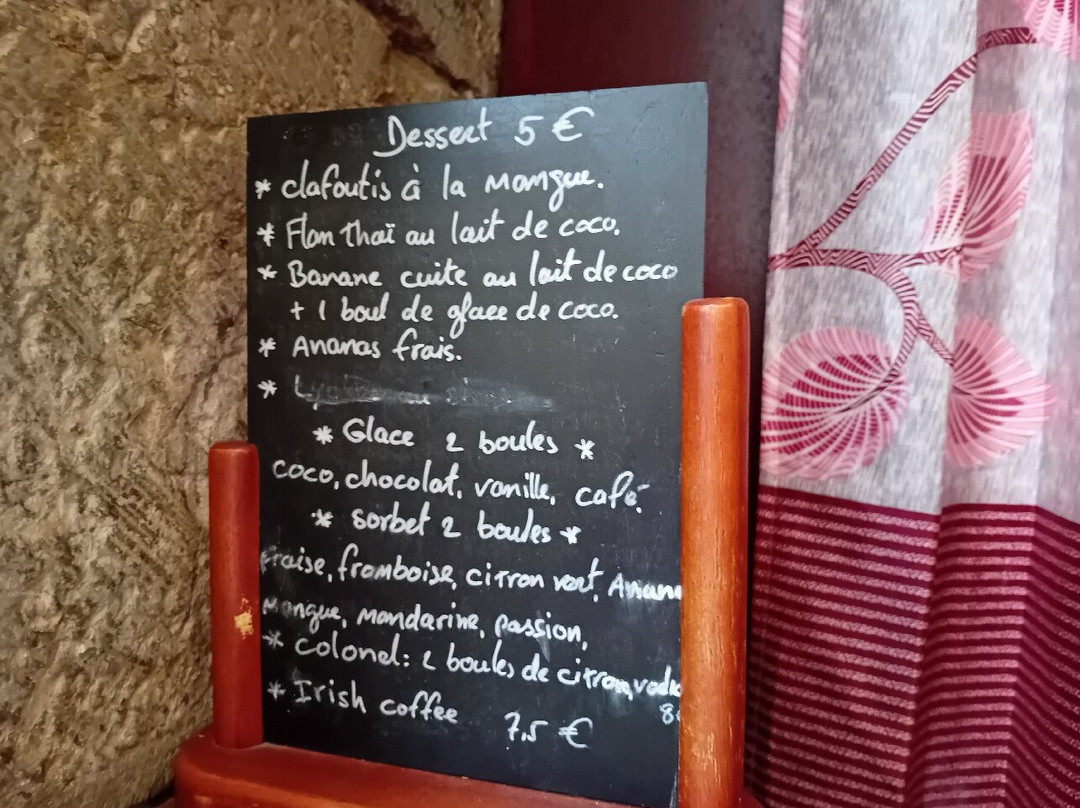 Dessert 5 €
* clafoutis à la Mangue.
* Flan thaï au lait de coco.
* Banane cuite au lait de coco
+ 1 boul de glace de coco.
* Ananas frais.
*
* Glace 2 boules *
coco, chocolat, vanille, café.
* sorbet 2 boules *
fraise, framboise, citron vert, Anana
Mangue, mandarine, passion,
* Colonel: 2 boules de citron, vodk
8
* Irish coffee 7,5 €